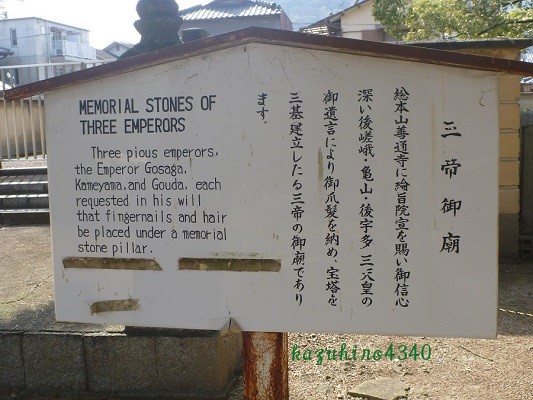 MEMORIAL STONES OF
THREE EMPERORS
Three pious emperors,
the Emperor Gosaga,
Kameyama, and Gouda, each
requested in his will
that fingernails and hair
be placed under a memorial
stone pillar.
三帝御廟
総本山善通寺に綸旨院宣を賜い御信心
深い後嵯峨・亀山・後宇多三天皇の
御遺言により御爪髪を納め、宝塔を
三基建立したる三帝の御廟であり
ます。
kazuhino4340